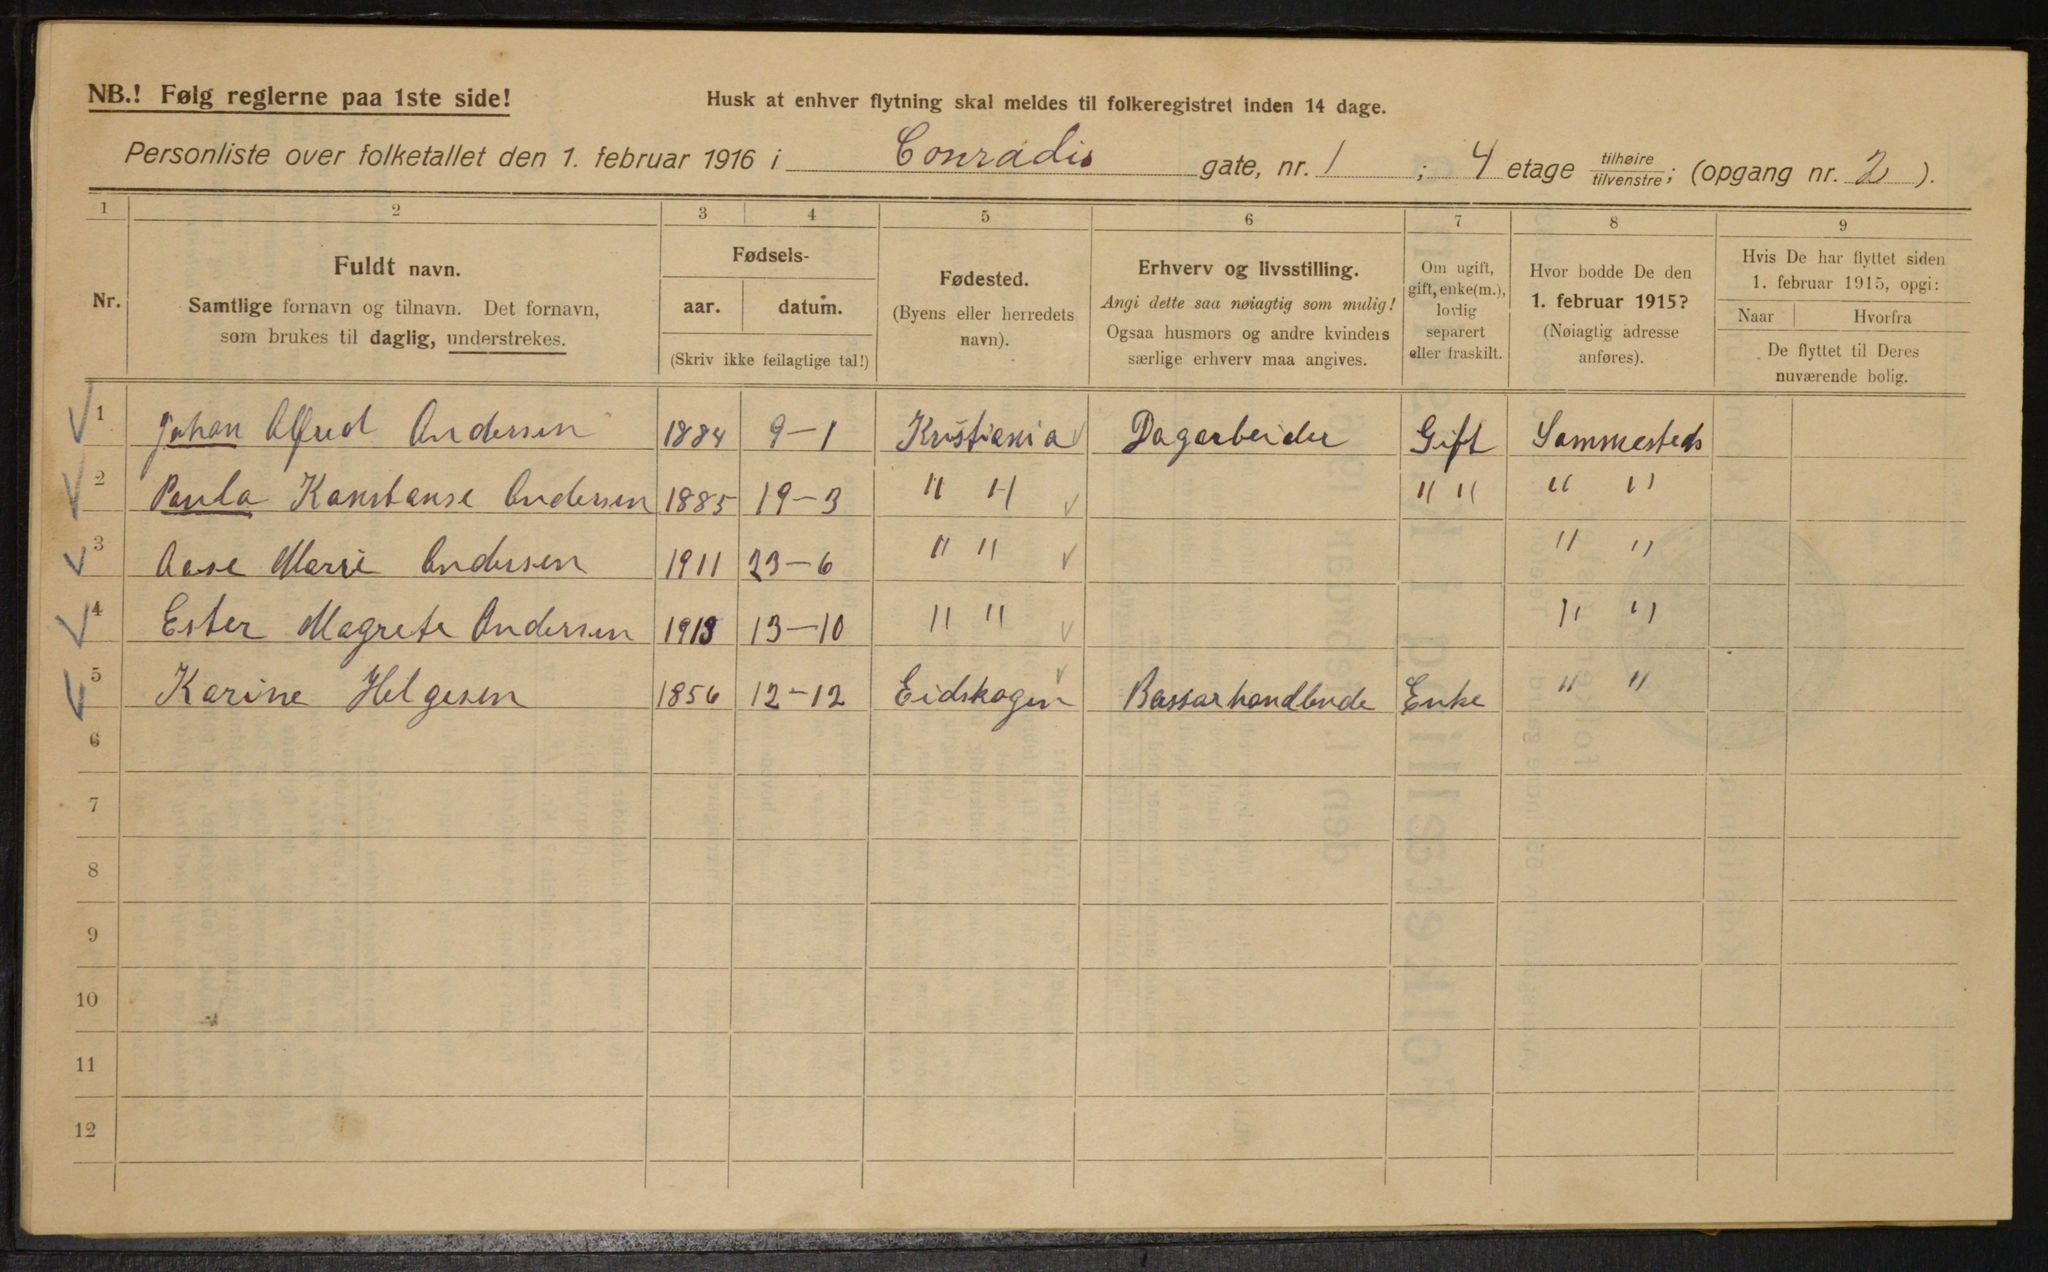 NB.! Følg reglerne paa 1ste side!
Husk at enhver flytning skal meldes til folkeregistret inden 14 dage.
Personliste over folketallet den 1. februar 1916 i Conradis gate, nr. 1 ; 4 etage tilhøire tilvenstre; (opgang nr. 2 ).
1 2 3 4 5 6 7 8 9
Nr.
Fuldt navn.
Samtlige fornavn og tilnavn. Det fornavn,
som brukes til daglig, understrekes.
Fødsels-
aar. datum.
(Skriv ikke feilagtige tal!)
Fødested.
(Byens eller herredets
navn).
Erhverv og livsstilling.
Angi dette saa nøiagtig som mulig!
Ogsaa husmors og andre kvinders
særlige erhverv maa angives.
Om ugift,
gift, enke(m.),
lovlig
separert
eller fraskilt.
Hvor bodde De den
1. februar 1915?
(Nøiagtig adresse
anføres).
Hvis De har flyttet siden
1. februar 1915, opgi:
Naar Hvorfra
De flyttet til Deres
nuværende bolig.
1 Johan Alfred Andersen 1884 9-1 Kristiania Dagarbeider Gift Sammesteds
2 Paula Konstanse Andersen 1885 19-3 " " " " " "
3 Aase Marie Andersen 1911 23-6 " " " "
4 Ester Magrete Andersen 1913 13-10 " " " "
5 Karine Helgesen 1856 12-12 Eidskogen Bassarhandlende Enke " "
6
7
8
9
10
11
12